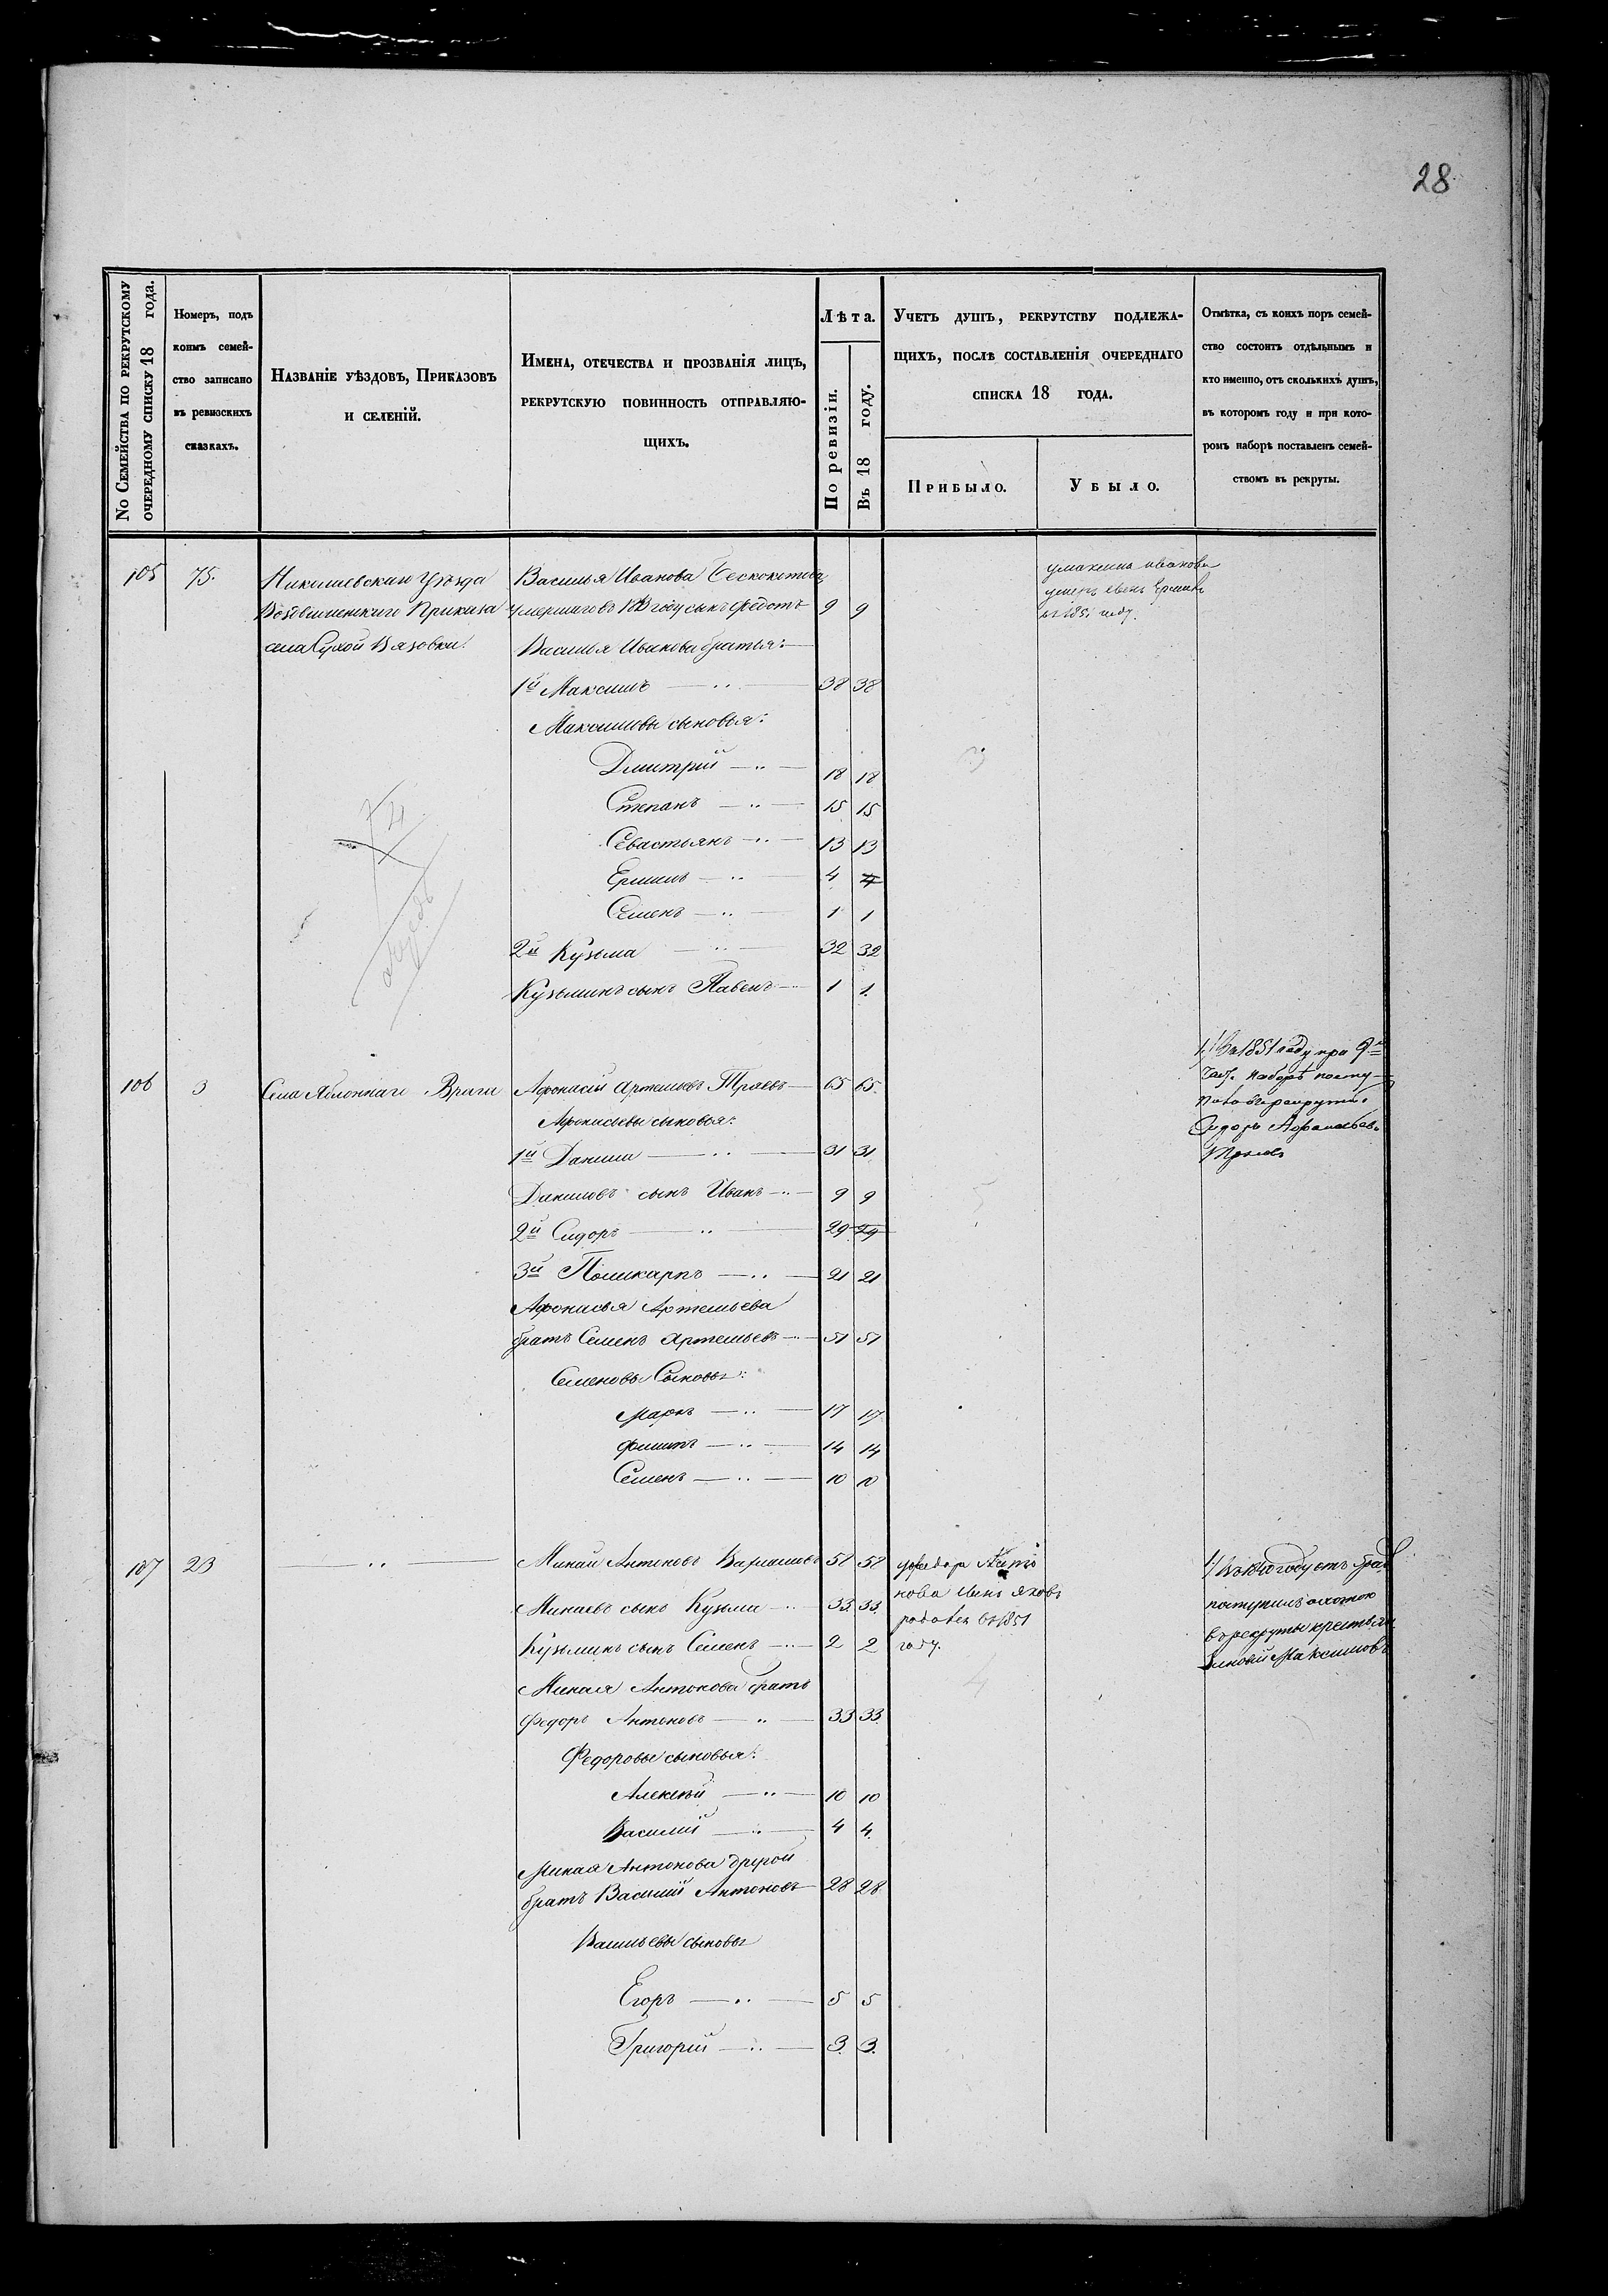 28
No Семейства по рекрутскому
очередному списку 18 года.
Номеръ, подъ
коимъ семей-
ство записано
въ ревизскихъ
сказкахъ.
Названіе уѣздовъ, Приказовъ
и селеній.
Имена, отечества и прозванія лицъ,
рекрутскую повинность отправляю-
щихъ.
Лѣта.
По ревизіи.
Въ 18 году.
Учетъ душъ, рекрутству подлежа-
щихъ, послѣ составленія очереднаго
списка 18 года.
Прибыло.
Убыло.
Отмѣтка, съ коихъ поръ семей-
ство состоитъ отдѣльнымъ и
кто именно, отъ сколькихъ душъ,
въ которомъ году и при кото-
ромъ наборѣ поставленъ семей-
ствомъ въ рекруты.
105 75. Николаевскаго Уѣзда Василья Иванова
Приказа умершаго въ году сынъ Федотъ 9 9
села Сухой Вязовки. Василья Иванова братья:
умаксима иванова
умеръ сынъ
въ 1851 году.
1й Максимъ 38 38
Максимовы сыновья:
Дмитрій 18 18
Степанъ 15 15
Севастьянъ 13 13
Ермилъ 4 4
Семенъ 1 1
2й Кузьма 32 32
Кузьминъ сынъ Павелъ 1 1
106 3 Села Яблоннаго Врага Афонасій Артемьевъ 65 65
Афонасьевы сыновья:
1й Данила 31 31
Даниловъ сынъ Иванъ 9 9
2й Сидоръ 29 29
3й Поликарпъ 21 21
Афонасья Артемьева
братъ Семенъ Артемьевъ 51 51
Семеновы Сыновья:
Маркъ 17 17
Филипъ 14 14
Семенъ 10 10
1/ Въ 1851 году при 9й
част. наборѣ посту-
Сидоръ
107 23 Минай Антоновъ 58 58
Минаевъ сынъ Кузьма 33 33
Кузьминъ сынъ Семенъ 2 2
Миная Антонова братъ
Федоръ Антоновъ 33 33
Федоровы сыновья:
Алексѣй 10 10
Василій 4 4
Миная Антонова другой
братъ Василій Антоновъ 28 28
Васильевы сыновья
Егоръ 5 5
Григорій 3. 3.
уфедора
нова сынъ яковъ
родился въ 1851
году.
поступилъ охотою
въ рекруты крестьян
Максимовъ
3
4